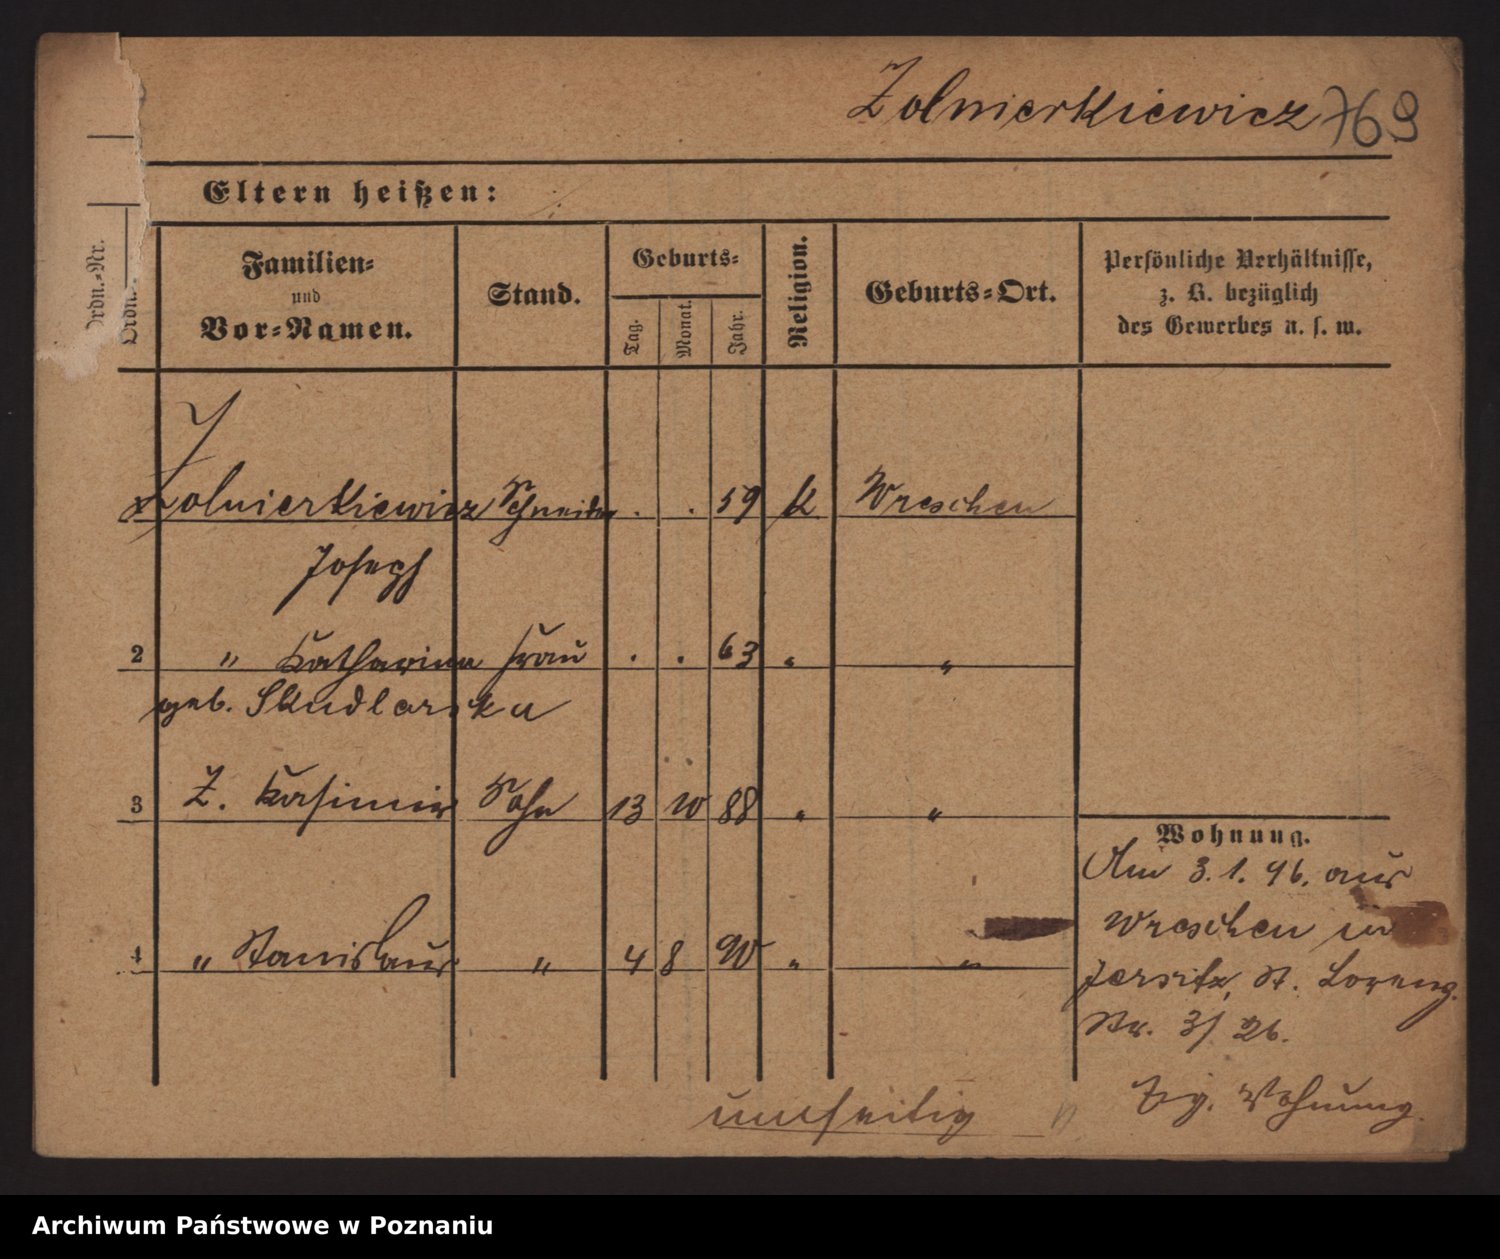 Zolnierkiewicz 769
Eltern heißen:
Ordn.-Nr.
Ordn.-
Familien-
und
Vor-Namen.
Stand.
Geburts-
Tag.
Monat.
Jahr.
Religion.
Geburts-Ort.
Persönliche Verhältnisse,
z. B. bezüglich
des Gewerbes u. s. w.
Zolnierkiewicz Schneider . . 59 k Wreschen
Joseph
2 " Katharina Frau . . 63 " "
geb. Skudlarska
3 Z. Kasimir Sohn 13 10 88 " "
4 " Stanislaus " 4 8 90 " "
Wohnung.
Am 3.1.96. aus
Wreschen in
Jersitz, St. Loreng.
Str. 3/ 26.
Wohnung.
umseitig
Archiwum Państwowe w Poznaniu